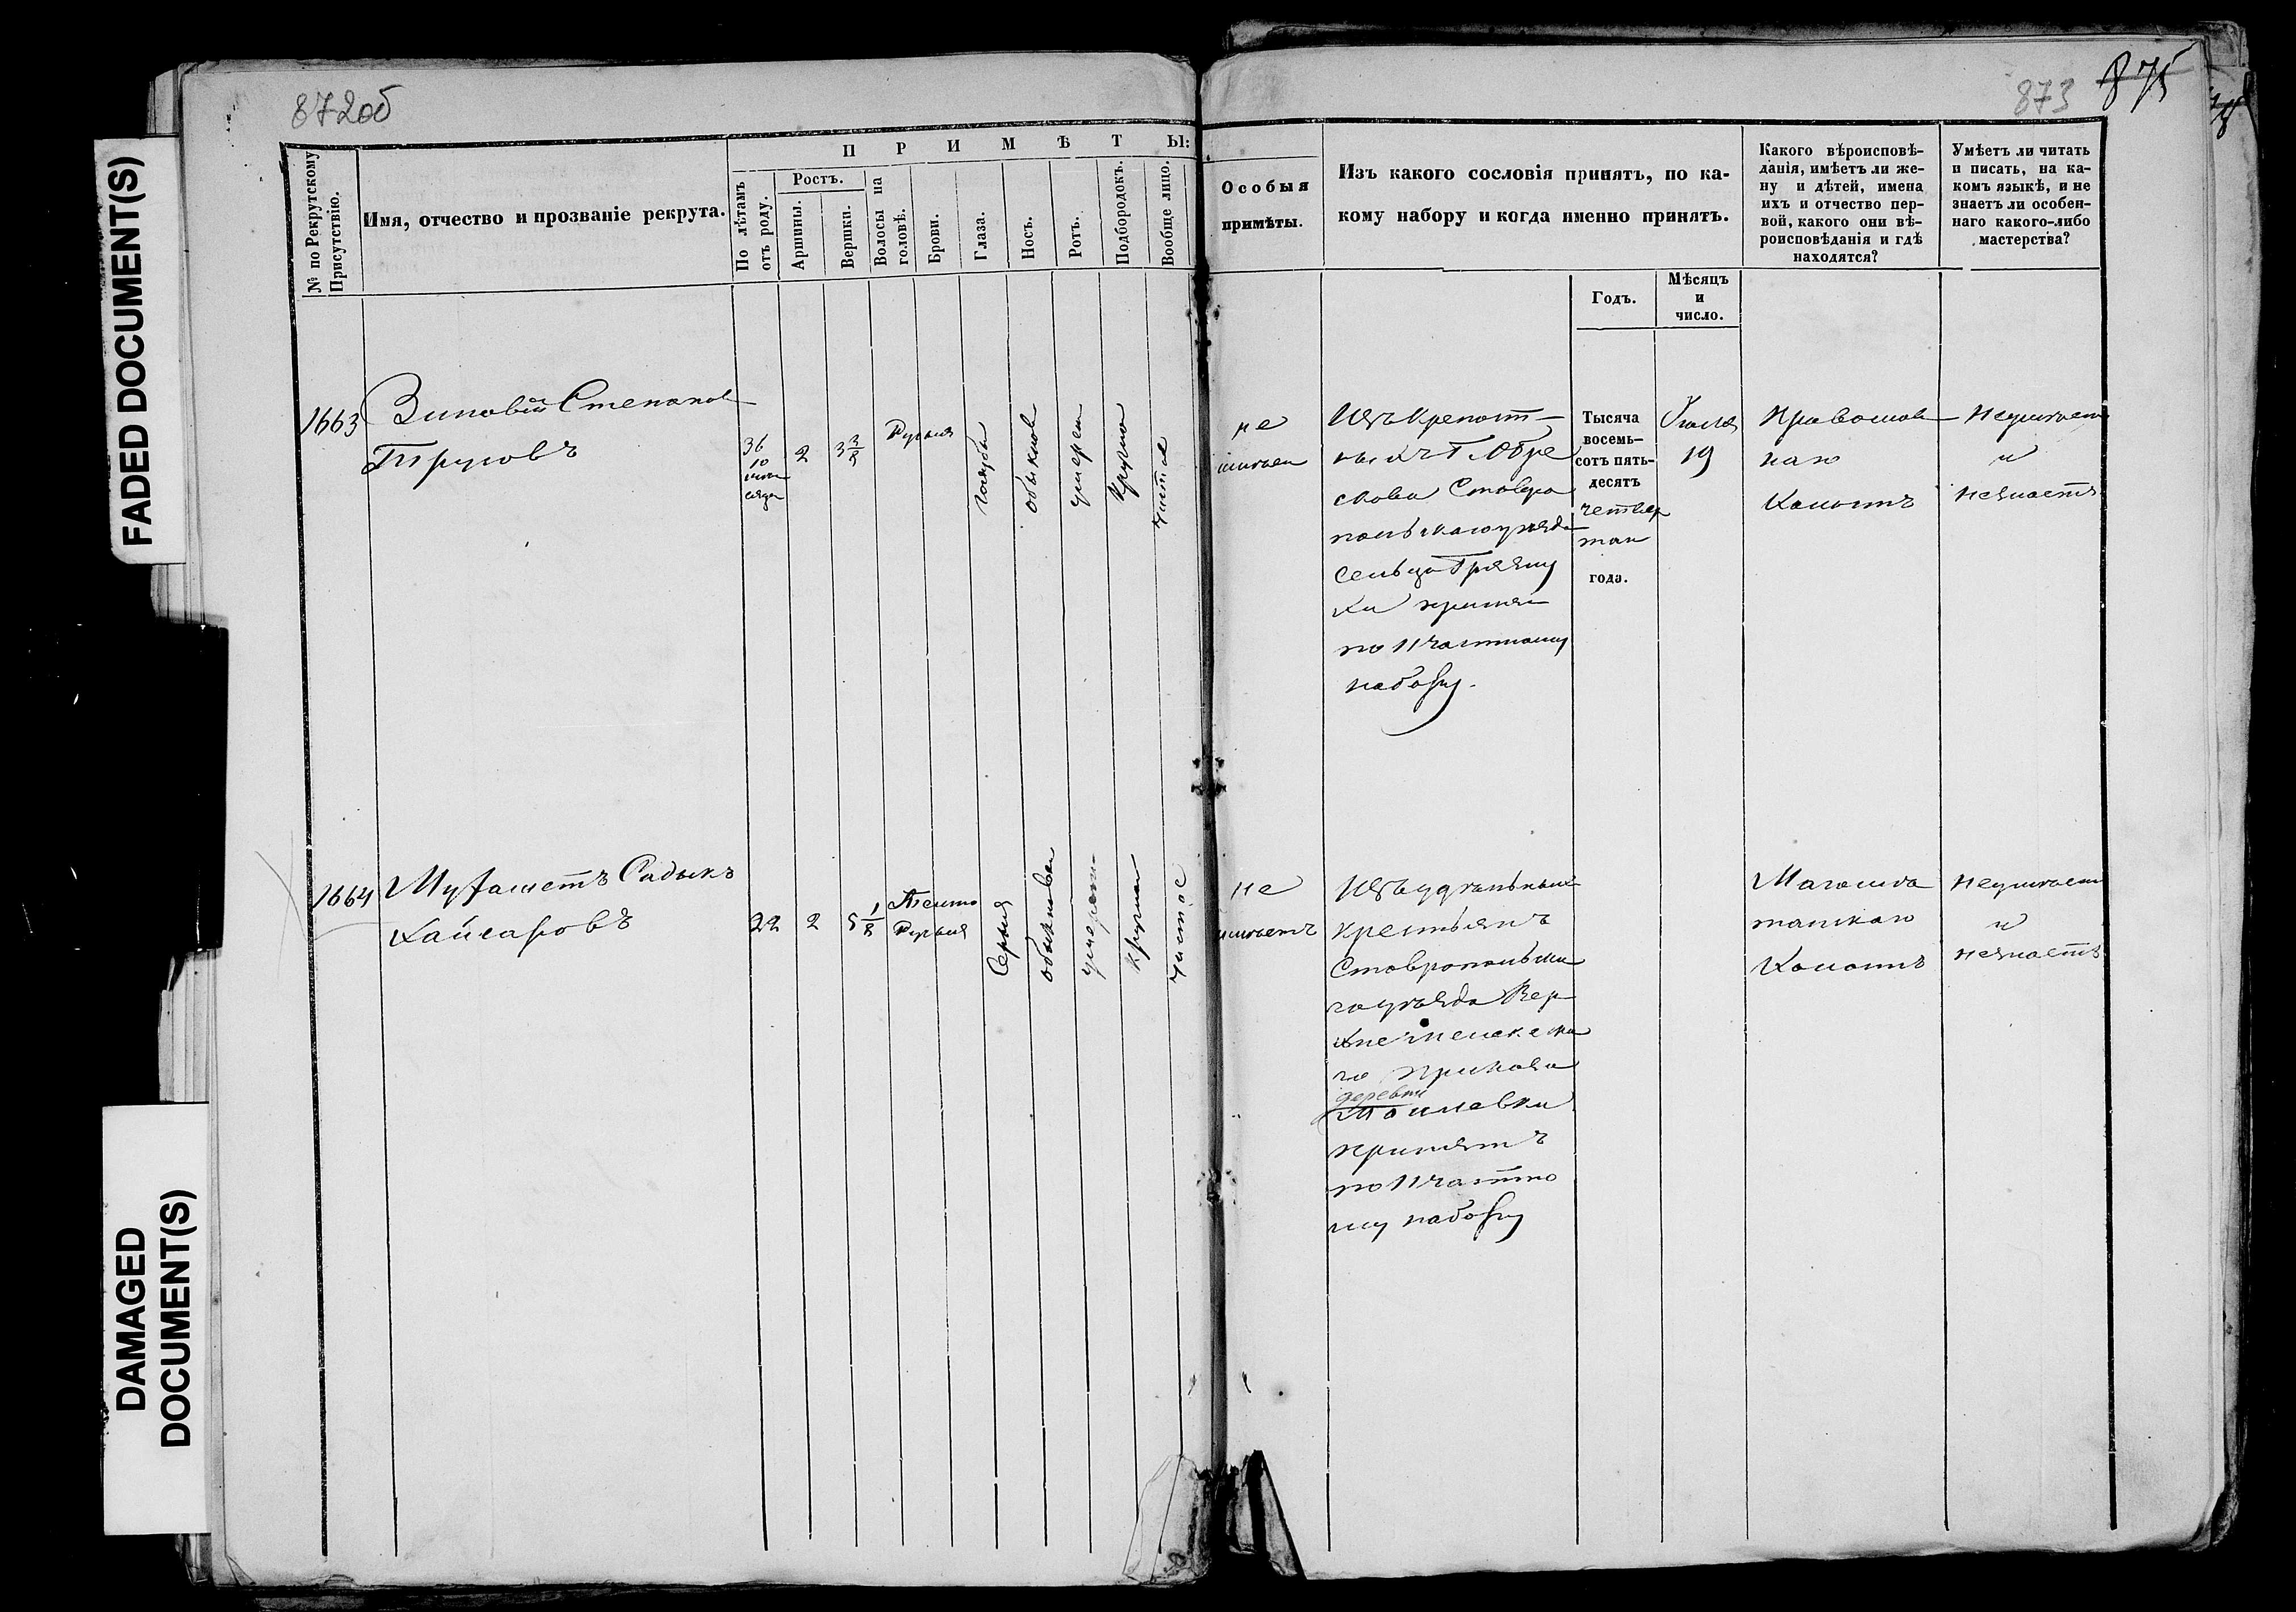 872об
873 875
FADED DOCUMENT(S)
DAMAGED
DOCUMENT(S)
ПРИМѢТЫ:
№ по Рекрутскому
Присутствію.
Имя, отчество и прозваніе рекрута.
По лѣтамъ
отъ роду.
Ростъ.
Аршины.
Вершки.
Волосы на
головѣ.
Брови.
Глаза.
Носъ.
Ротъ.
Подбородокъ.
Вообще лицо.
Особыя
примѣты.
Изъ какого сословія принятъ, по ка-
кому набору и когда именно принятъ.
Годъ.
Мѣсяцъ
и
число.
Какого вѣроисповѣ-
данія, имѣетъ ли же-
ну и дѣтей, имена
ихъ и отчество пер-
вой, какого они вѣ-
роисповѣданія и гдѣ
находятся?
Умѣетъ ли читать
и писать, на ка-
комъ языкѣ, и не
знаетъ ли особен-
наго какого-либо
мастерства?
1663
Зиновій Степанов
Трусовъ
36
10
2
3 3/8
Русыя
голубы
обыкнов
умерен
кругло
чистое
не
имѣет
Изъ крепост-
ныхъ Г. Обре
скова Ставро
польскаго уѣзда
сельца Грязну
хи принят
по 11 частному
набору.
Тысяча
восемь-
сотъ пять-
десятъ
четвер
таго
года.
Іюля
19
Православ
наго
Холостъ
неумѣетъ
и
незнаетъ
1664
Мухаметъ Садыкъ
Кайсаровъ
22
2
5 1/8
Темно
Русыя
Серыя
обыкновен
умерен
круглый
чистое
не
имѣетъ
Изъ удѣльныхъ
крестьянъ
Ставропольска
го уѣзда Вер
хнечелекска
го приказа
деревни
принятъ
по 11 частно
му набору
Магоме
танскаго
Холостъ
неумѣетъ
и
незнаетъ